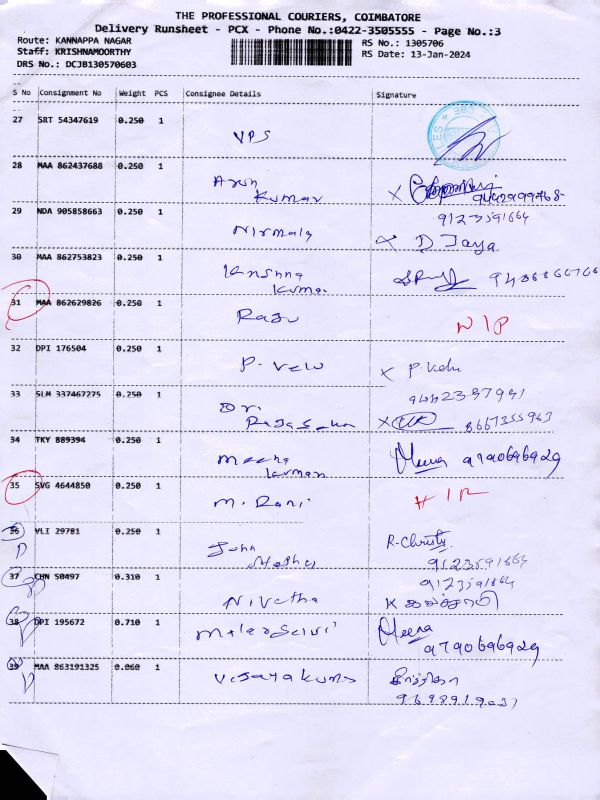 THE PROFESSIONAL COURIERS, COIMBATORE
Delivery Runsheet - PCX - Phone No.:0422-3505555 - Page No.:3
Route: KANNAPPA NAGAR RS No.: 1305706
Staff: KRISHNAMOORTHY RS Date: 13-Jan-2024
DRS No.: DCJB130570603
S No Consignment No Weight PCS Consignee Details Signature
27 SRT 54347619 0.250 1 VPS
28 MAA 862437688 0.250 1 Arun Kumar
29 NDA 905858663 0.250 1 Nirmala 9123591664
X D Jaya
30 MAA 862753823 0.250 1 Krishna Kumar
31 MAA 862629826 0.250 1 Raju N/P
32 DPI 176504 0.250 1 P. Velu X P. Velu
33 SLM 337467275 0.250 1 Dri Rajasekar 8667355963
34 TKY 889394 0.250 1 Meena Kumari Meena 9790696929
35 SVG 4644850 0.250 1 M. Rani
36 VLI 29781 0.250 1 John R-Christy
9123591664
37 CHN 50497 0.310 1 Nivetha 9123591664
38 DPI 195672 0.710 1 Malarselvi Meena
9790696929
39 MAA 863191325 0.060 1 Vijayakumar